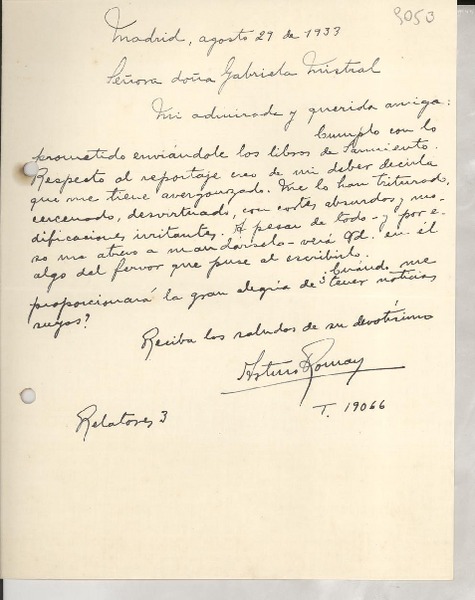 3053
Madrid, agosto 29 de 1933
Señora doña Gabriela Mistral
Mi admirada y querida amiga:
Cumplo con lo
prometido enviándole los libros de Sarmiento.
Respecto al reportaje creo de mi deber decirla
que me tiene avergonzado. Me lo han triturado,
cercenado, desvirtuado, con cortes absurdos y mo-
dificaciones irritantes. A pesar de todo - y por e-
so me atrevo a mandárselo - verá Ud. en él
algo del fervor que puse al escribirlo.
¿Cuándo me
proporcionará la gran alegría de tener noticias
suyas?
Reciba los saludos de su devotísimo
Arturo Romay
Relatores 3
T. 19066